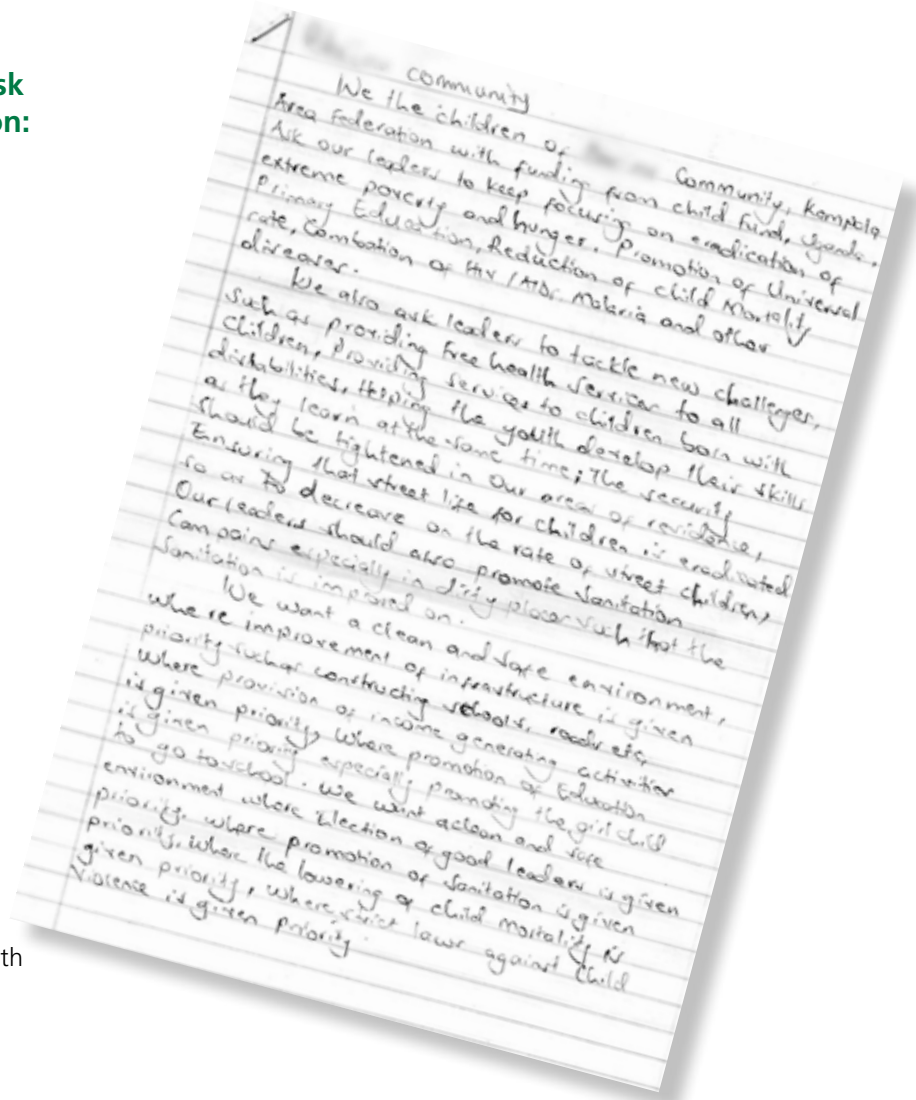 sk
on:
community
We the children of Community, Kampala
Area Federation with funding from child Fund, Uganda.
Ask our leaders to keep focusing on eradication of
extreme poverty and hunger. Promotion of Universal
Primary Education, Reduction of child Mortality
rate, Combation of HIV /AIDs. Malaria and other
diseases.
We also ask leaders to tackle new challenges,
Such as providing free health services to all
Children, Providing services to children born with
distabilities, Helping the youth develop their skills
as they learn at the same time; The security
Should be tightened in our areas of residence,
Ensuring that street life for children is eradicated
so as to decrease on the rate of street children,
Our leaders should also promote Sanitation
Campains especially in dirty places such that the
Sanitation is improved on.
We want a clean and safe environment,
where improvement of infrastructure is given
priority such as constructing schools, roads etc,
where provision of income generating activities
is given priority, where promotion of Education
is given priority especially promoting the girl child
to go to school. We want a clean and safe
environment where Election of good leaders is given
priority, where promotion of Sanitation is given
priority, where the lowering of child mortality is
given priority, where strict laws against Child
Violence is given priority.
th